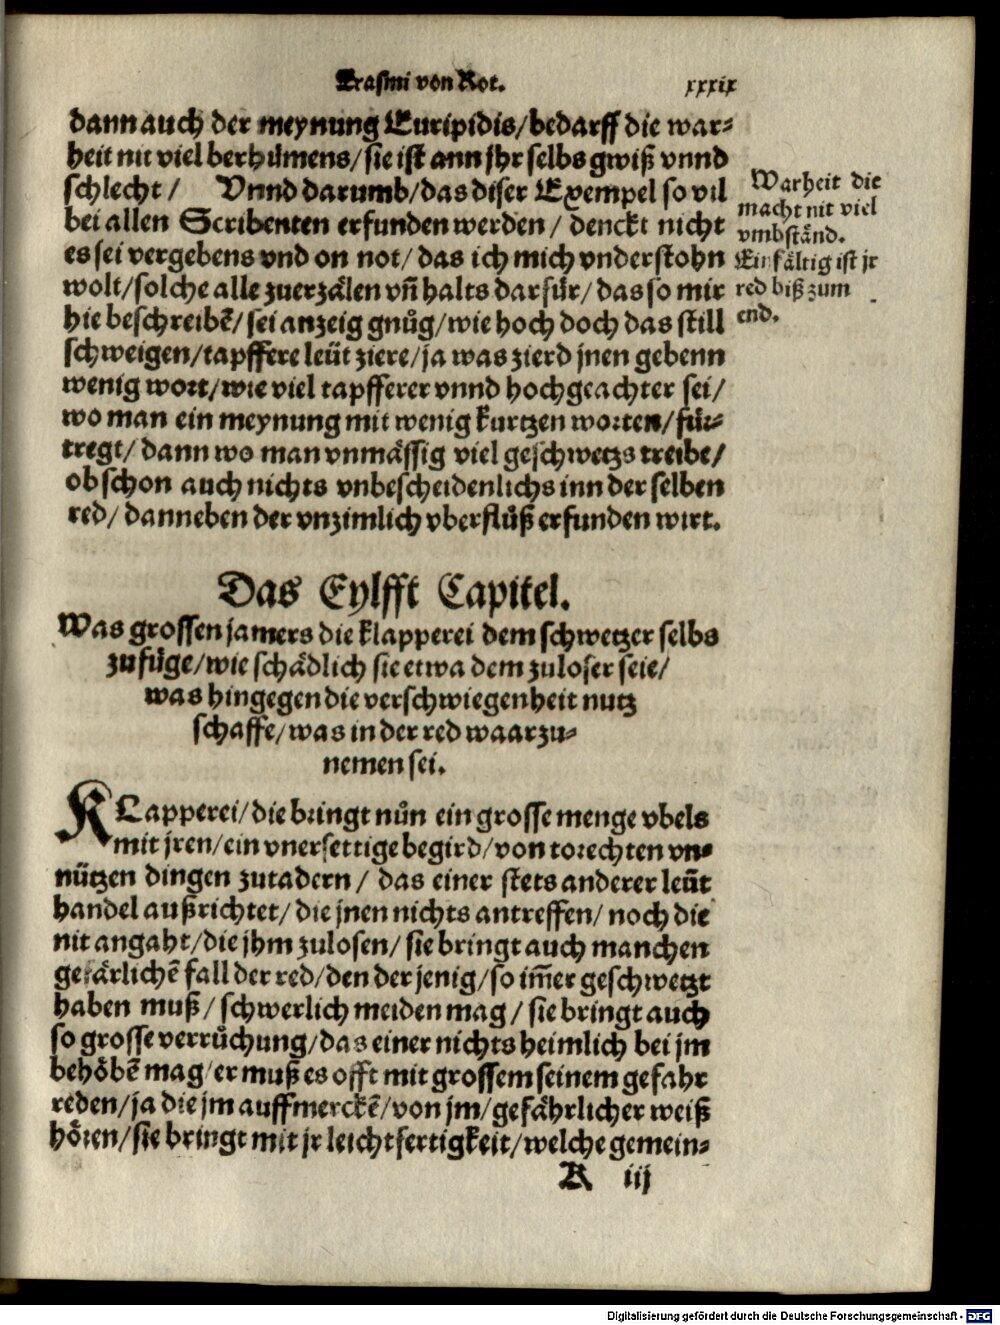 Erasmi von Rot. xxxix
dann auch der meynung Euripidis/ bedarff die war⸗
heit nit viel berhümens/ sie ist ann jhr selbs gwiß vnnd
schlecht/ Vnnd darumb/ das diser Exempel so vil
bei allen Scribenten erfunden werden/ denckt nicht
es sei vergebens vnd on not/ das ich mich vnderstohn
wolt/ solche alle zuerzälen vñ halts darfür/ das so mir
hie beschreibẽ/ sei anzeig gnůg/ wie hoch doch das still
schweigen/ tapffere leüt ziere/ ja was zierd jnen gebenn
wenig wort/ wie viel tapfferer vnnd hochgeachter sei/
wo man ein meynung mit wenig kurtzen worten/ für⸗
tregt/ dann wo man vnmässig viel geschwetzs treibe/
ob schon auch nichts vnbescheidenlichs inn der selben
red/ danneben der vnzimlich vberflüß erfunden wirt.
Warheit die
macht nit viel
vmbständ.
Einfältig ist jr
red biß zum
end.
Das Eylfft Capitel.
Was grossen jamers die klapperei dem schwetzer selbs
zufüge/ wie schädlich sie etwa dem zuloser seie/
was hingegen die verschwiegenheit nutz
schaffe/ was in der red waarzu⸗
nemen sei.
KLapperei/ die bringt nůn ein grosse menge vbels
mit jren/ ein vnersettige begird/ von torechten vn⸗
nützen dingen zutadern/ das einer stets anderer leüt
handel außrichtet/ die jnen nichts antreffen/ noch die
nit angaht/ die jhm zulosen/ sie bringt auch manchen
gefärlichẽ fall der red/ den der jenig/ so im̃er geschwetzt
haben muß/ schwerlich meiden mag/ sie bringt auch
so grosse verrůchung/ das einer nichts heimlich bei jm
behöbẽ mag/ er muß es offt mit grossem seinem gefahr
reden/ ja die jm auffmerckẽ/ von jm/ gefährlicher weiß
hören/ sie bringt mit jr leichtfertigkeit/ welche gemein⸗
K iij
Digitalisierung gefördert durch die Deutsche Forschungsgemeinschaft - DFG